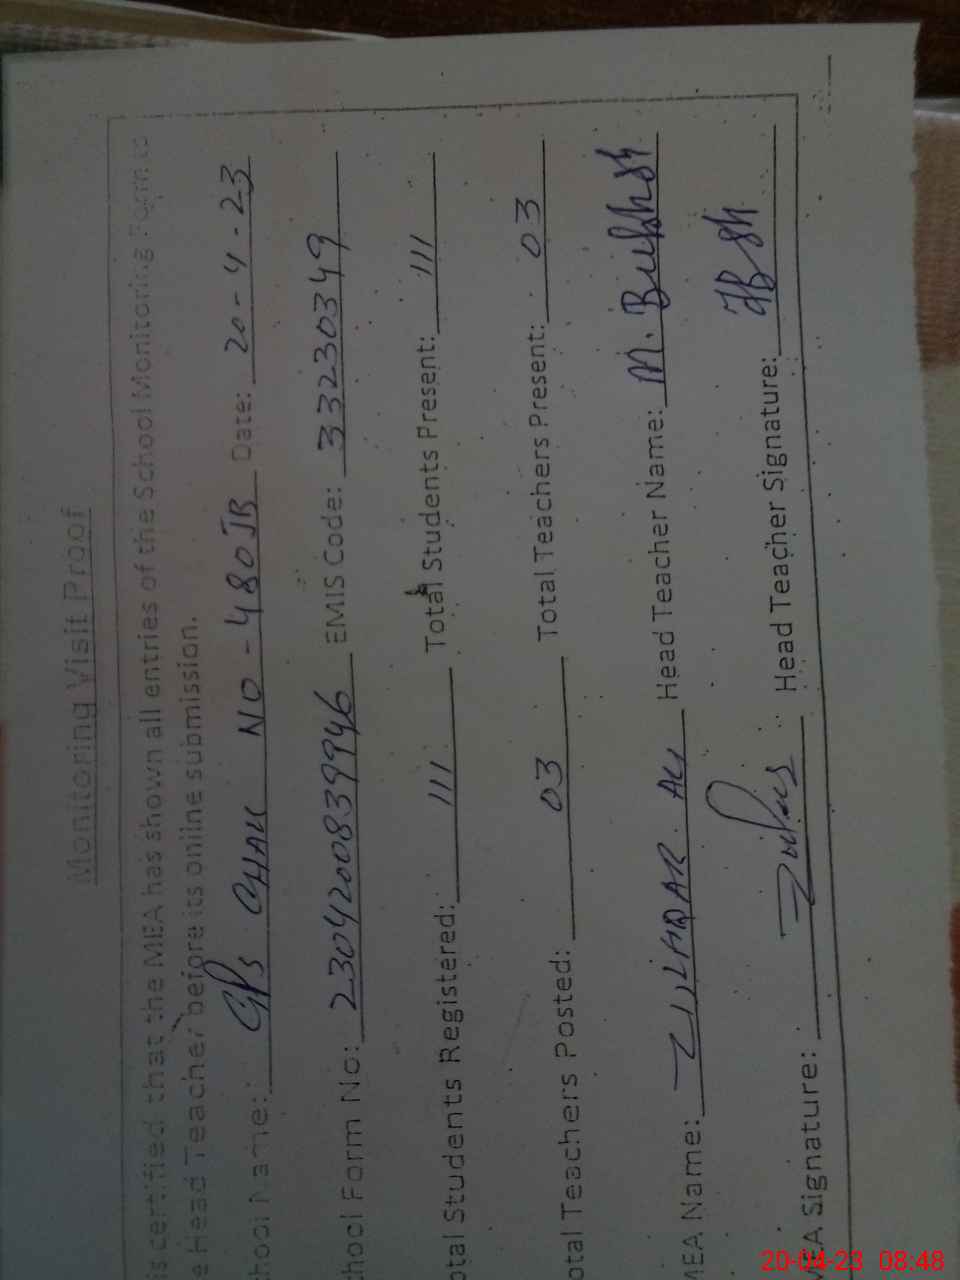 Monitoring Visit Proof
is certified that the MEA has shown all entries of the School Monitoring Form to
e Head Teacher before its online submission.
chool Name: GPS CHAK NO - 480 JB Date: 20-4-23
chool Form No: 2304200839946 EMIS Code: 33230349
otal Students Registered: 111 Total Students Present: 111
otal Teachers Posted: 03 Total Teachers Present: 03
MEA Name: ZULHDAR ALI Head Teacher Name: M. Bukhsh
MEA Signature: Head Teacher Signature:
20-04-23 08:48